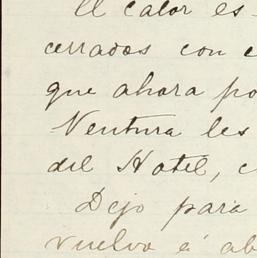 El calor es
cerrados con
que ahora po
Ventura les
del Hotel,
Dejo para
vuelvo á ab